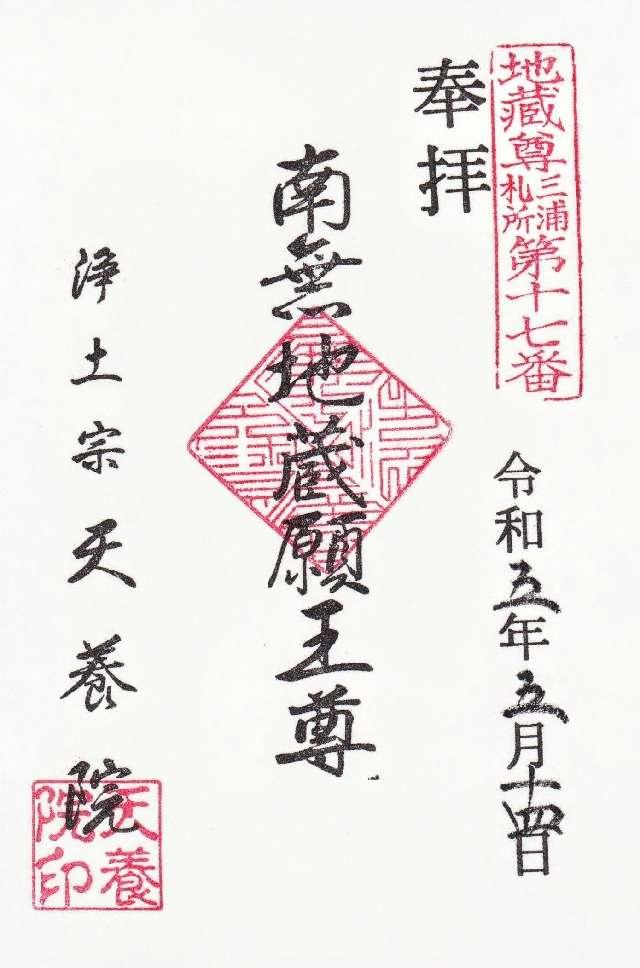 地蔵尊三浦札所第十七番
奉拝
令和五年五月十四日
南無地蔵願王尊
浄土宗天養院
天養院印